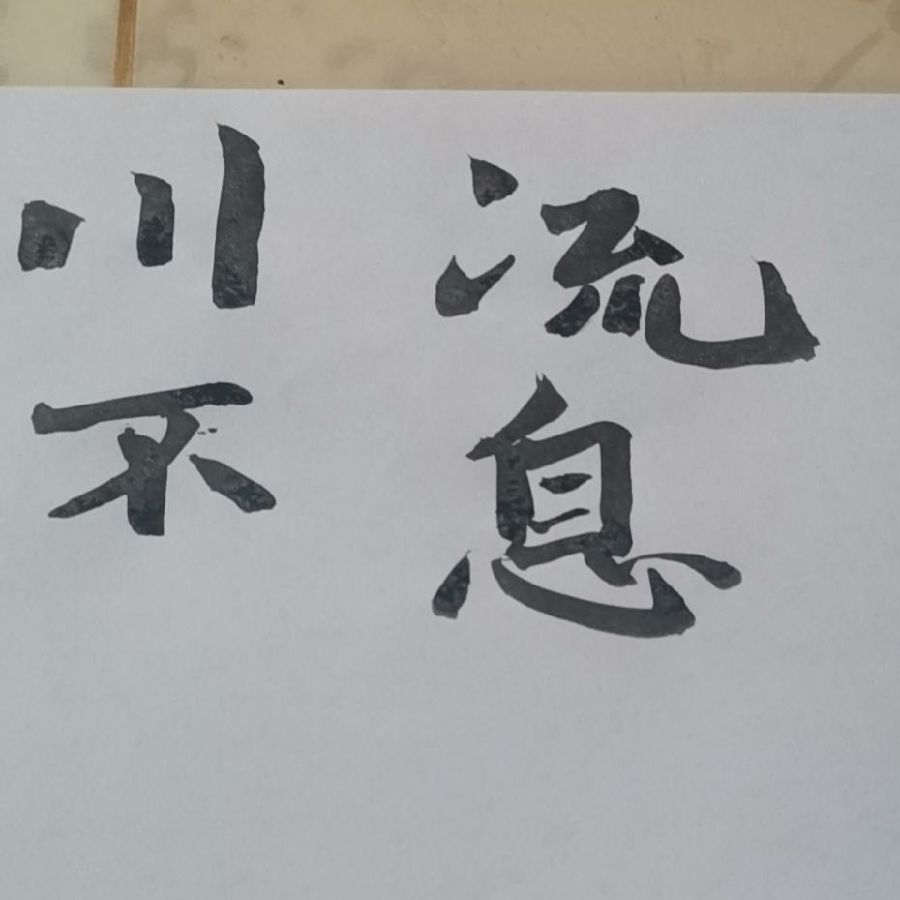 川流
不息